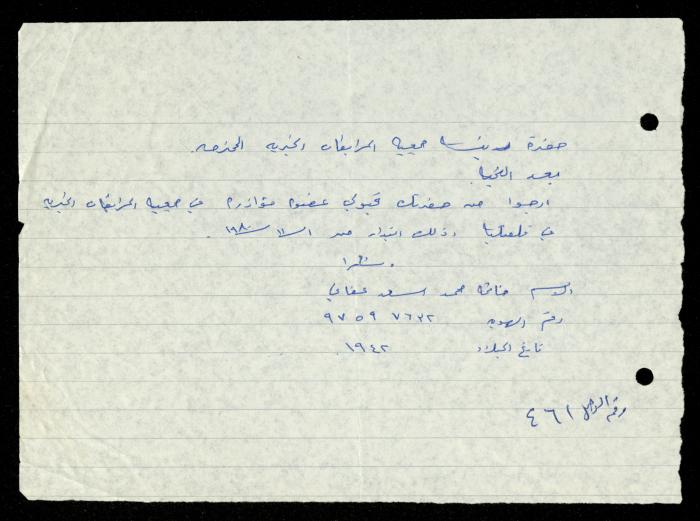 حضرة رئيسة جمعية المرابطات الخيرية المحترمه.
بعد التحية
ارجوا من حضرتك قبولي عضوا مؤازره في جمعية المرابطات الخيريه
في قلقيليا وذلك ابتداء من ١٩٨٠
وشكرا
الاسم محمد اسعد عفاني
رقم الهويه ٩٧٥٩٧٦٣٢
تاريخ الميلاد ١٩٤٢.
رقم الوصل ٤٦١